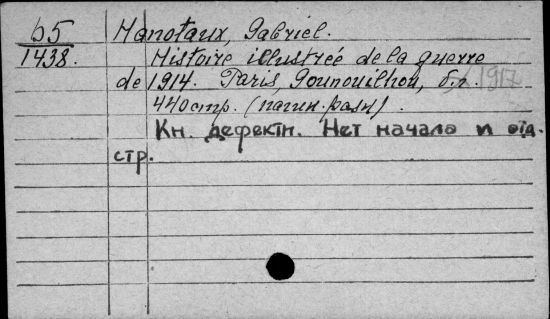 b5 Hanotaux, Gabriel.
1438. Histoire illustrée de la guerre
de 1914. Paris, Gounouilhou, б.г. 1917
440 стр. (пагин. разн).
Кн. дефектн. Нет начала и отд.
стр.